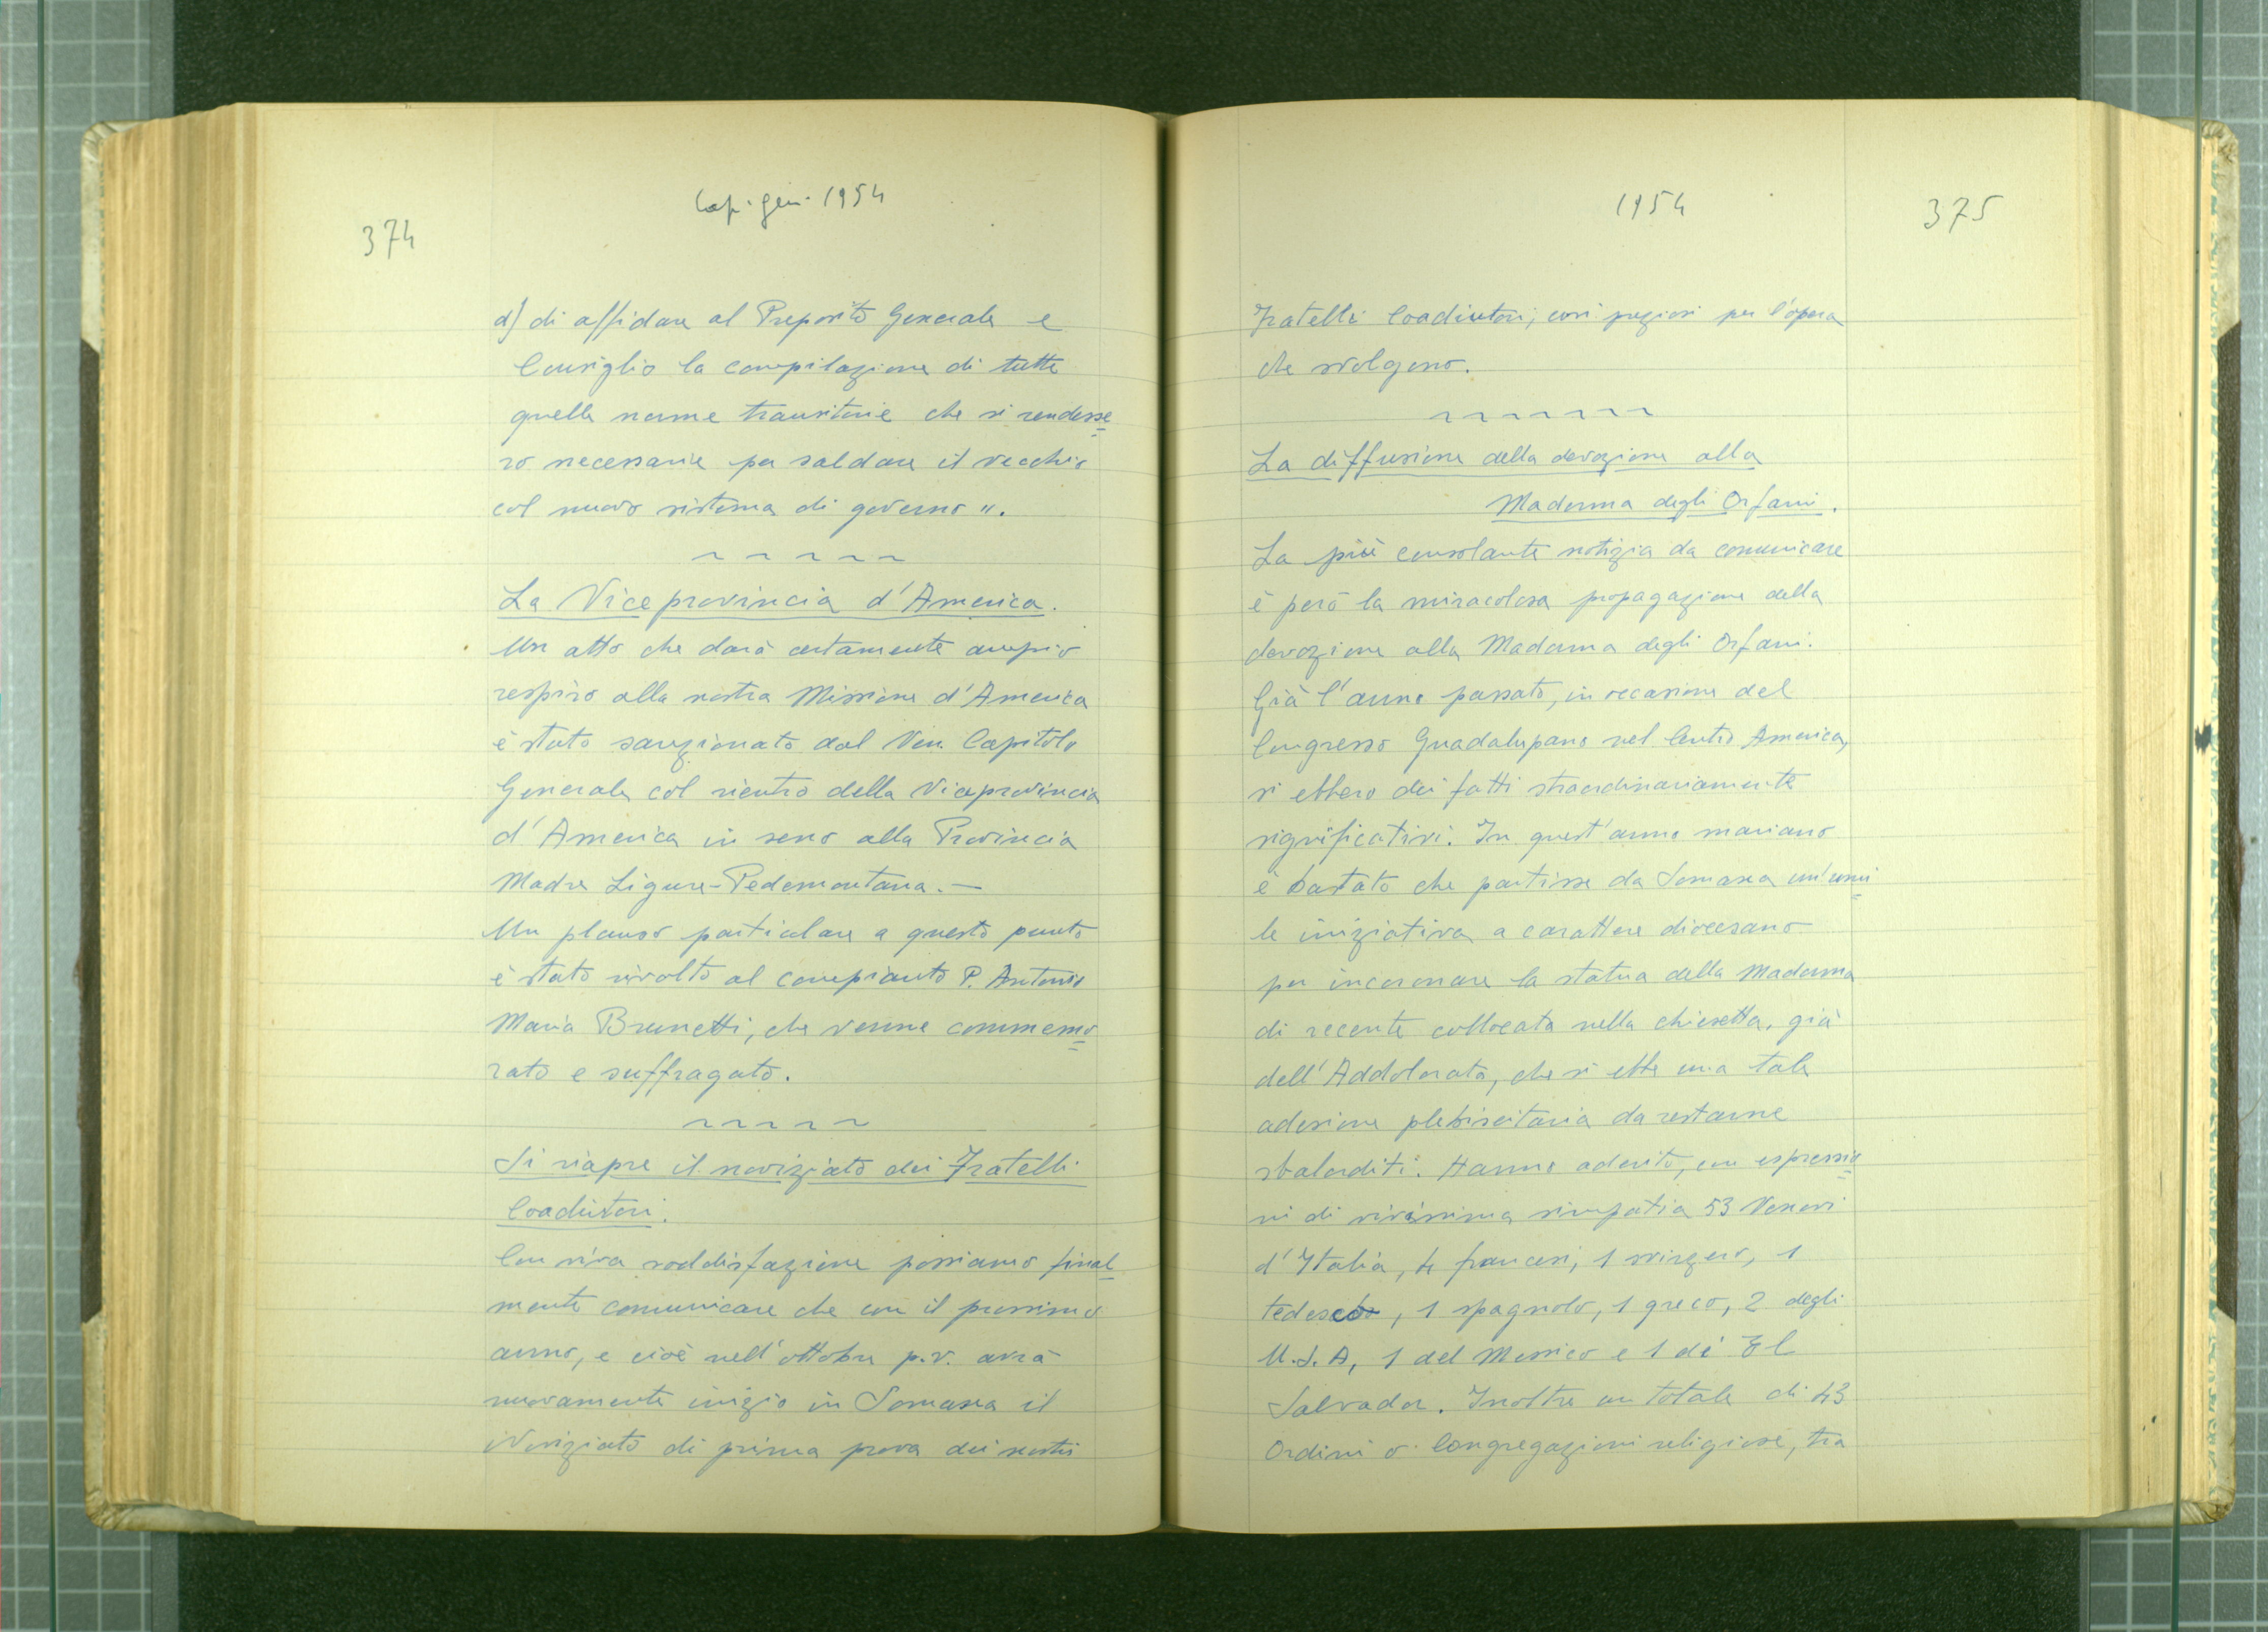 374
Cap. gen. 1954
d) di affidare al Preposito Generale e
Consiglio la compilazione di tutte
quelle norme transitorie che si rendesse=
ro necessarie per saldare il vecchio
col nuovo sistema di governo".
~ ~ ~ ~ ~
La Viceprovincia d'America.
Un atto che darà certamente ampio
respiro alla nostra Missione d'America
è stato sanzionato dal Ven. Capitolo
Generale col rientro della Viceprovincia
d'America in seno alla Provincia
Madre Ligure-Pedemontana.-
Un plauso particolare a questo punto
è stato rivolto al compianto P. Antonio
Maria Brunetti, che venne commemo=
rato e suffragato.
~ ~ ~ ~ ~
Si riapre il noviziato dei Fratelli
Coadiutori.
Con viva soddisfazione possiamo final=
mente comunicare che con il prossimo
anno, e cioè nell'ottobre p.v. avrà
nuovamente inizio in Somasca il
Noviziato di prima prova dei nostri
1954
375
Fratelli Coadiutori, così preziosi per l'opera
che svolgono.
~ ~ ~ ~ ~ ~ ~
La diffusione della devozione alla
Madonna degli Orfani.
La più consolante notizia da comunicare
è però la miracolosa propagazione della
devozione alla Madonna degli Orfani.
Già l'anno passato, in occasione del
Congresso Guadalupano nel Centro America,
si ebbero dei fatti straordinariamente
significativi. In quest'anno mariano
è bastato che partisse da Somasca un'umi=
le iniziativa a carattere diocesano
per incoronare la statua della Madonna
di recente collocata nella chiesetta, già
dell'Addolorata, che si ebbe una tale
adesione plebiscitaria da restarne
sbalorditi. Hanno aderito, con espressio=
ni di vivissima simpatia 53 Vescovi
d'Italia, 4 francesi, 1 svizzero, 1
tedesco, 1 spagnolo, 1 greco, 2 degli
U.S.A, 1 del Messico e 1 di El
Salvador. Inoltre un totale di 43
Ordini o Congregazioni religiose, tra